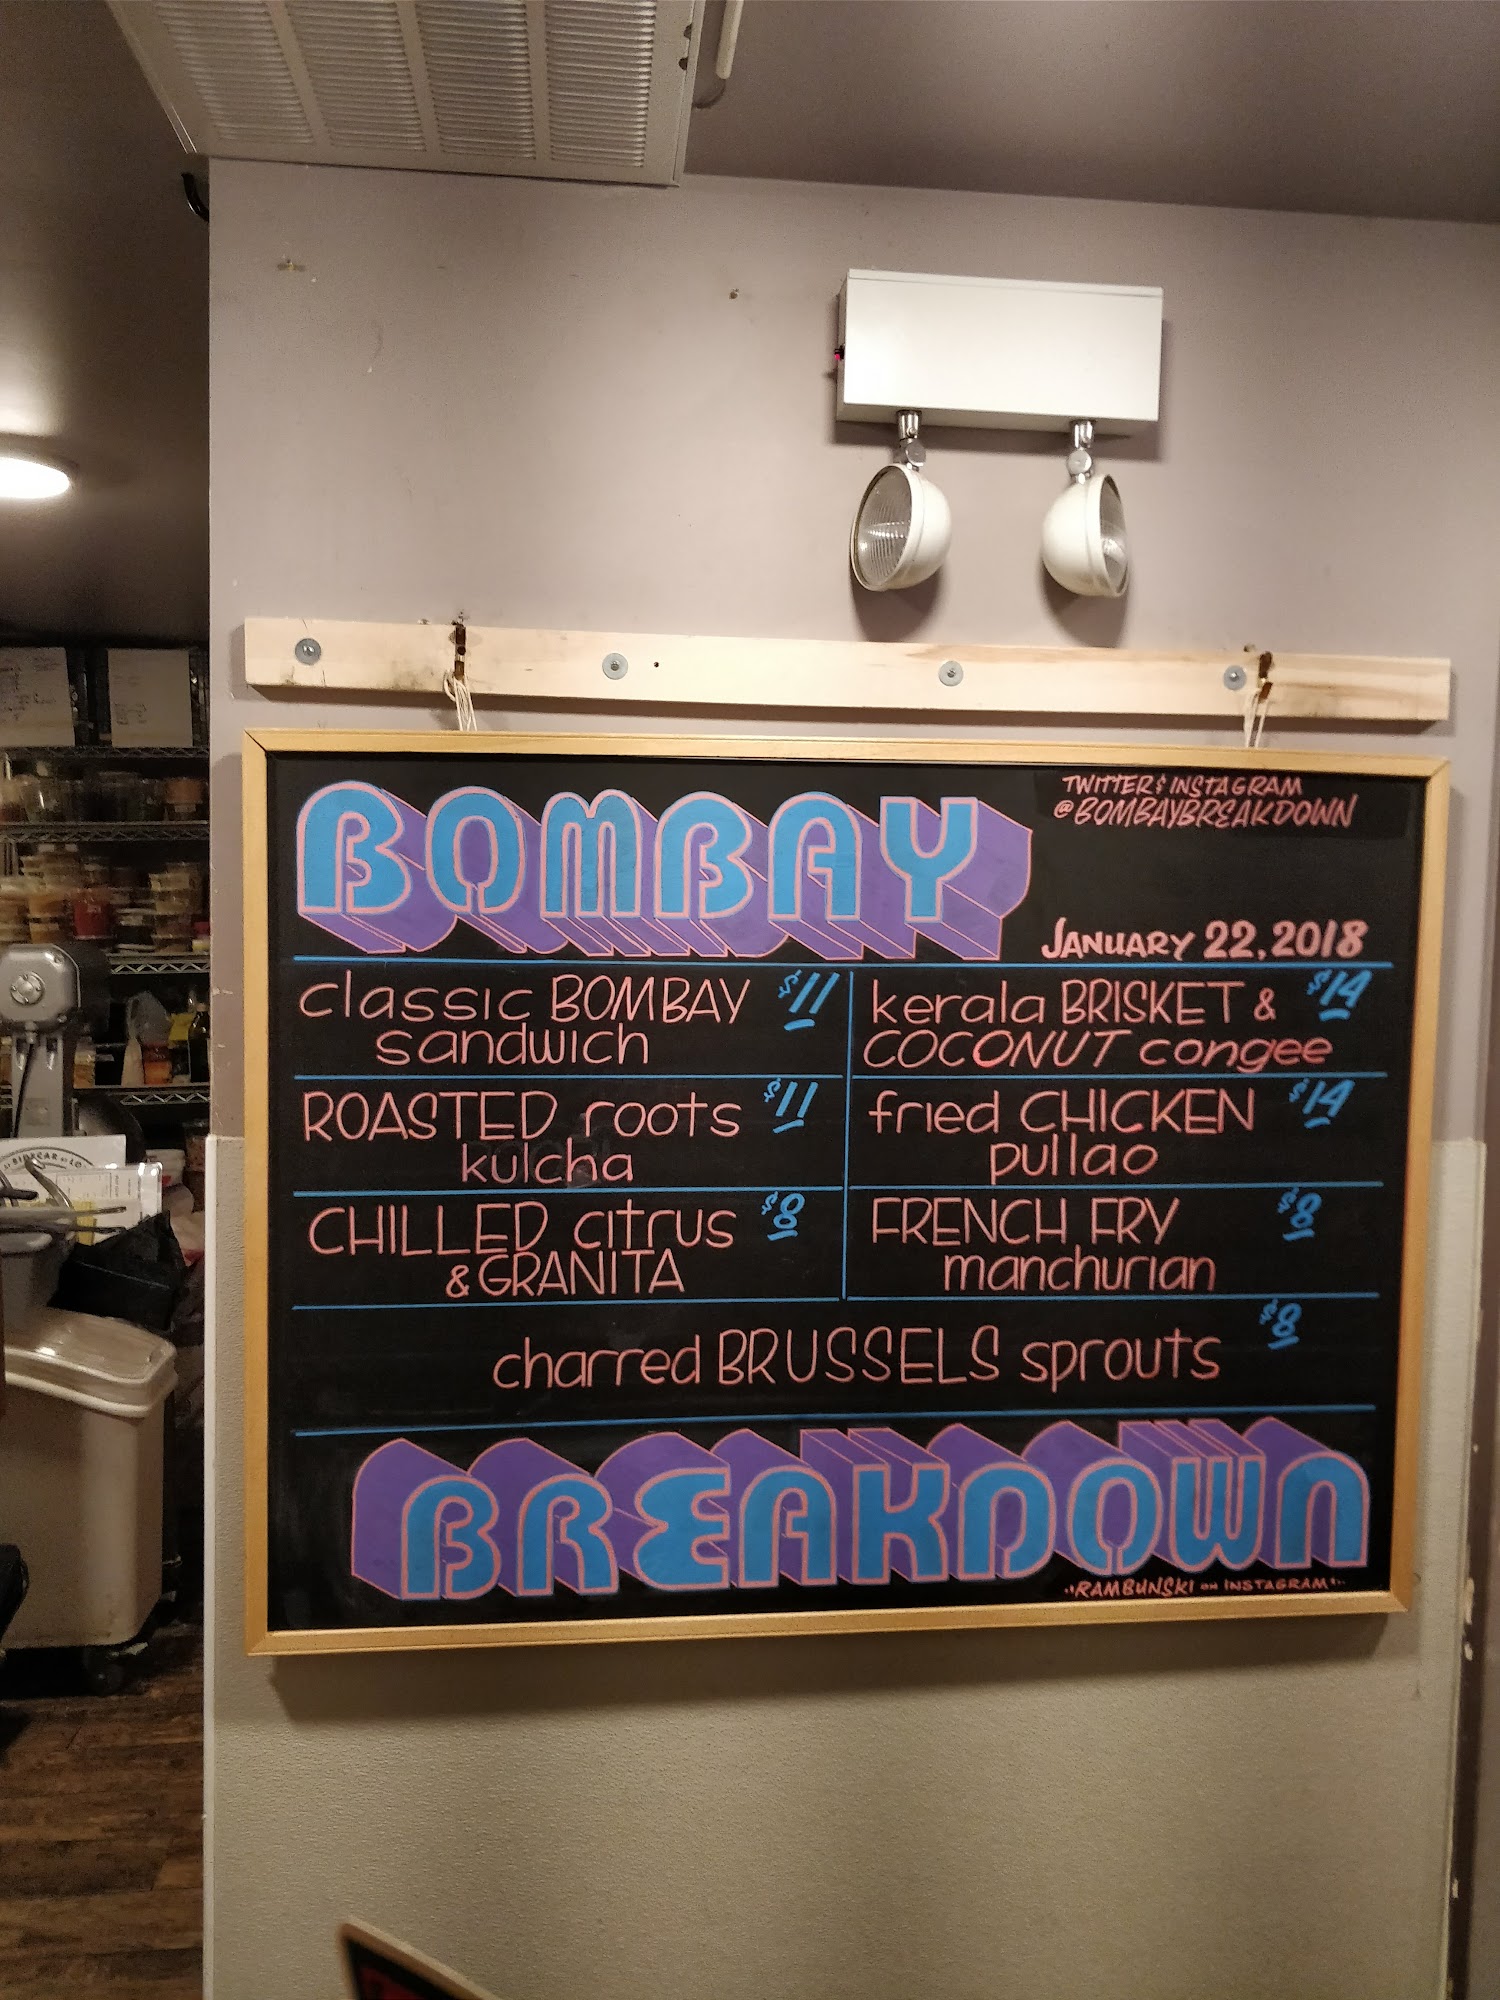 BOMBAY
TWITTER & INSTAGRAM
@BOMBAYBREAKDOWN
JANUARY 22, 2018
classic BOMBAY $11
sandwich
kerala BRISKET & $14
COCONUT congee
ROASTED roots $11
kulcha
fried CHICKEN $14
pullao
CHILLED citrus $8
& GRANITA
FRENCH FRY $8
manchurian
charred BRUSSELS sprouts $8
BREAKDOWN
"RAMBUNSKI on INSTAGRAM"
SIDECAR